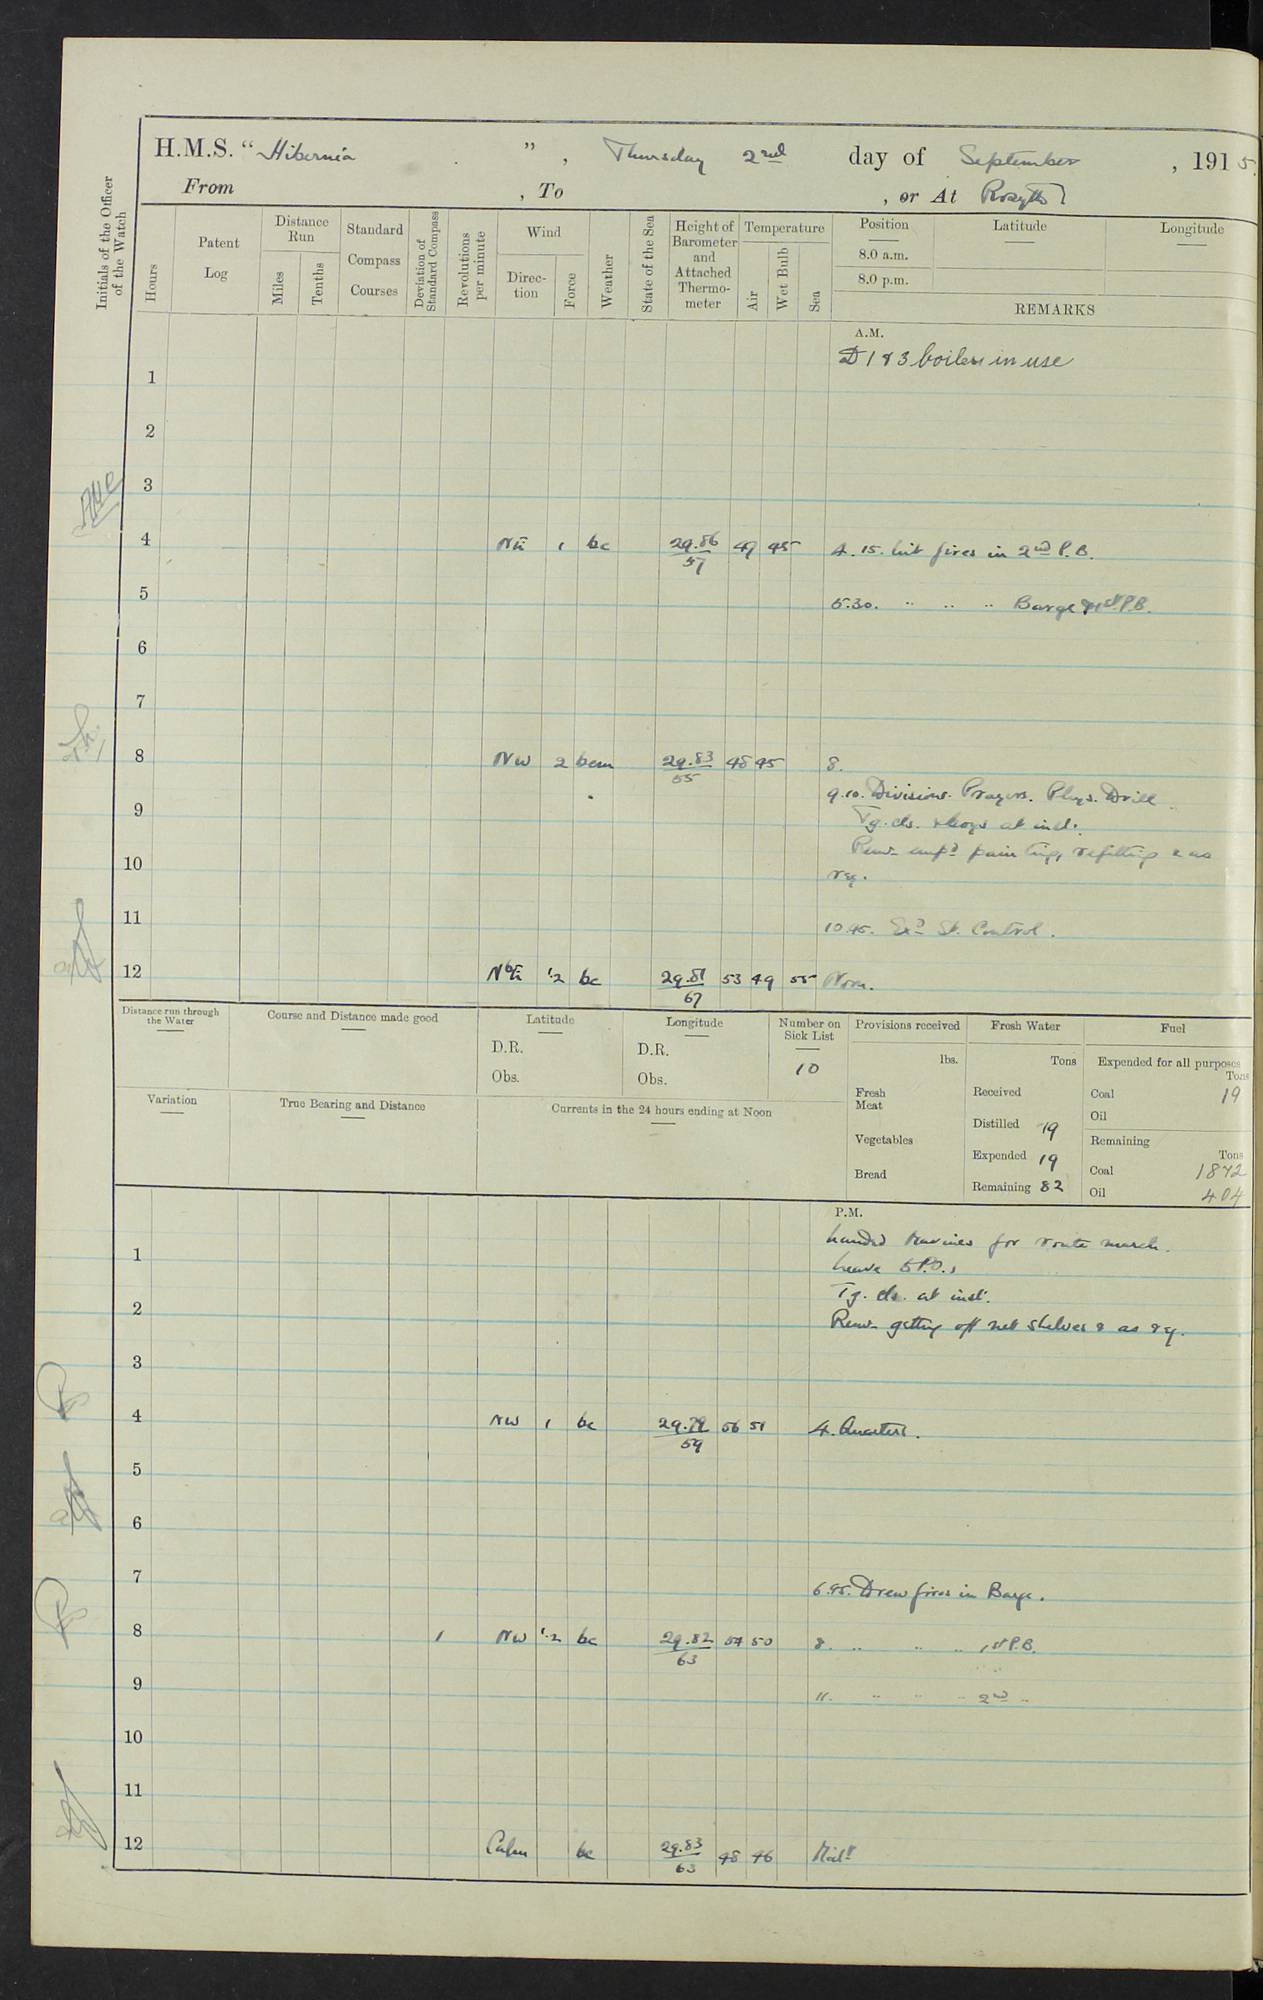 H.M.S. "Hibernia", Thursday 2nd day of September, 1915.
From , To , or At Rosyth
Initials of the Officer of the Watch
Hours
Patent Log
Distance Run
Miles
Tenths
Standard Compass Courses
Deviation of Standard Compass
Revolutions per minute
Wind
Direction
Force
Weather
State of the Sea
Height of Barometer and Attached Thermometer
Temperature
Air
Wet Bulb
Sea
Position Latitude Longitude
8.0 a.m.
8.0 p.m.
REMARKS
A.M.
D 1 & 3 boilers in use
1
2
3
4 NE 1 bc 29.86 57 47 45 4.15. Lit fires in 2nd P.B.
5 5.30. " " " Barge & 1st P.B.
6
7
8 NW 2 bcm 29.83 55 48 45 8.
9.10. Divisions. Prayers. Phys. Drill
9 Tg. cls. & boys at inst.
Remr empd painting, refitting & as
10 req.
11 10.45. Exd St. Control.
12 NbE 1.2 bc 29.81 67 53 49 55 Noon.
Distance run through the Water
Course and Distance made good
Latitude
D.R.
Obs.
Longitude
D.R.
Obs.
Number on Sick List
10
Provisions received
lbs.
Fresh Meat
Vegetables
Bread
Fresh Water
Tons
Received
Distilled 19
Expended 19
Remaining 82
Fuel
Expended for all purposes
Tons
Coal 19
Oil
Remaining
Tons
Coal 1872
Oil 404
Variation
True Bearing and Distance
Currents in the 24 hours ending at Noon
P.M.
Landed Marines for route march.
1 Leave to P.O.s
Tg. cls. at inst.
2 Remr getting off net shelves & as req.
3
4 NW 1 bc 29.79 59 56 51 4. Quarters.
5
6
7 6.45. Drew fires in Barge.
8 1 NW 1.2 bc 29.82 63 54 50 8. " " " 1st P.B.
9 11. " " " 2nd "
10
11
12 Calm bc 29.83 63 48 46 Midt